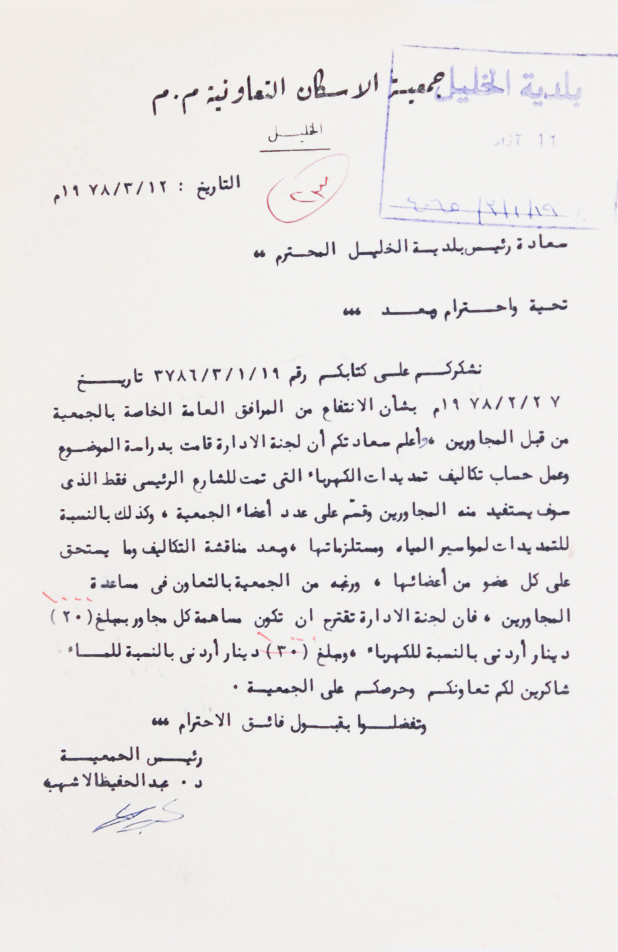 جمعية الاسكان التعاونية م.م
الخليل
بلدية الخليل
١٢ آذار
التاريخ : ١٩٧٨/٣/١٢م
٢٣
سعادة رئيس بلدية الخليل المحترم ،،
تحية واحترام وبعد ،،،
نشكركم على كتابكم رقم ٣٧٨٦/٣/١/١٩ تاريخ
١٩٧٨/٢/٢٧م بشأن الانتفاع من المرافق العامة الخاصة بالجمعية
من قبل المجاورين ، وأعلم سعادتكم أن لجنة الادارة قامت بدراسة الموضوع
وعمل حساب تكاليف تمديدات الكهرباء التى تمت للشارع الرئيسى فقط الذى
سوف يستفيد منه المجاورين وقسّم على عدد أعضاء الجمعية ، وكذلك بالنسبة
للتمديدات لمواسير المياه ومستلزماتها ، وبعد مناقشة التكاليف وما يستحق
على كل عضو من أعضائها ، ورغبه من الجمعية بالتعاون فى مساعدة
المجاورين ، فان لجنة الادارة تقترح ان تكون مساهمة كل مجاور بمبلغ (٢٠)
دينار أردنى بالنسبة للكهرباء ، ومبلغ (٣٠) دينار أردنى بالنسبة للماء
شاكرين لكم تعاونكم وحرصكم على الجمعية .
وتفضلوا بقبول فائق الاحترام ،،،
رئيس الجمعية
د . عبدالحفيظ الاشهب